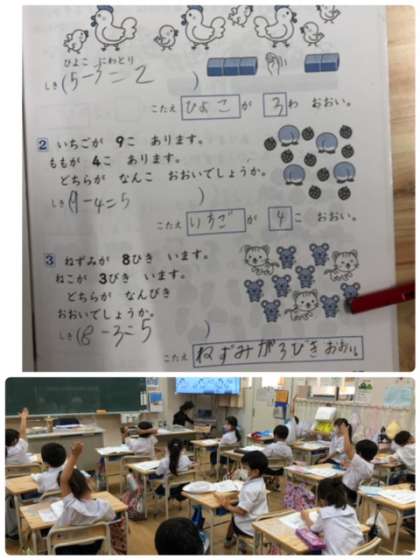 ひよこ にわとり
しき(5-3=2)
こたえ ひよこ が 3 わ おおい。
2 いちごが 9こ あります。
ももが 4こ あります。
どちらが なんこ おおいでしょうか。
しき(9-4=5)
こたえ いちご が 4 こ おおい。
3 ねずみが 8ひき います。
ねこが 3びき います。
どちらが なんびき
おおいでしょうか。
しき(8-3=5)
こたえ ねずみが 3びきおおい